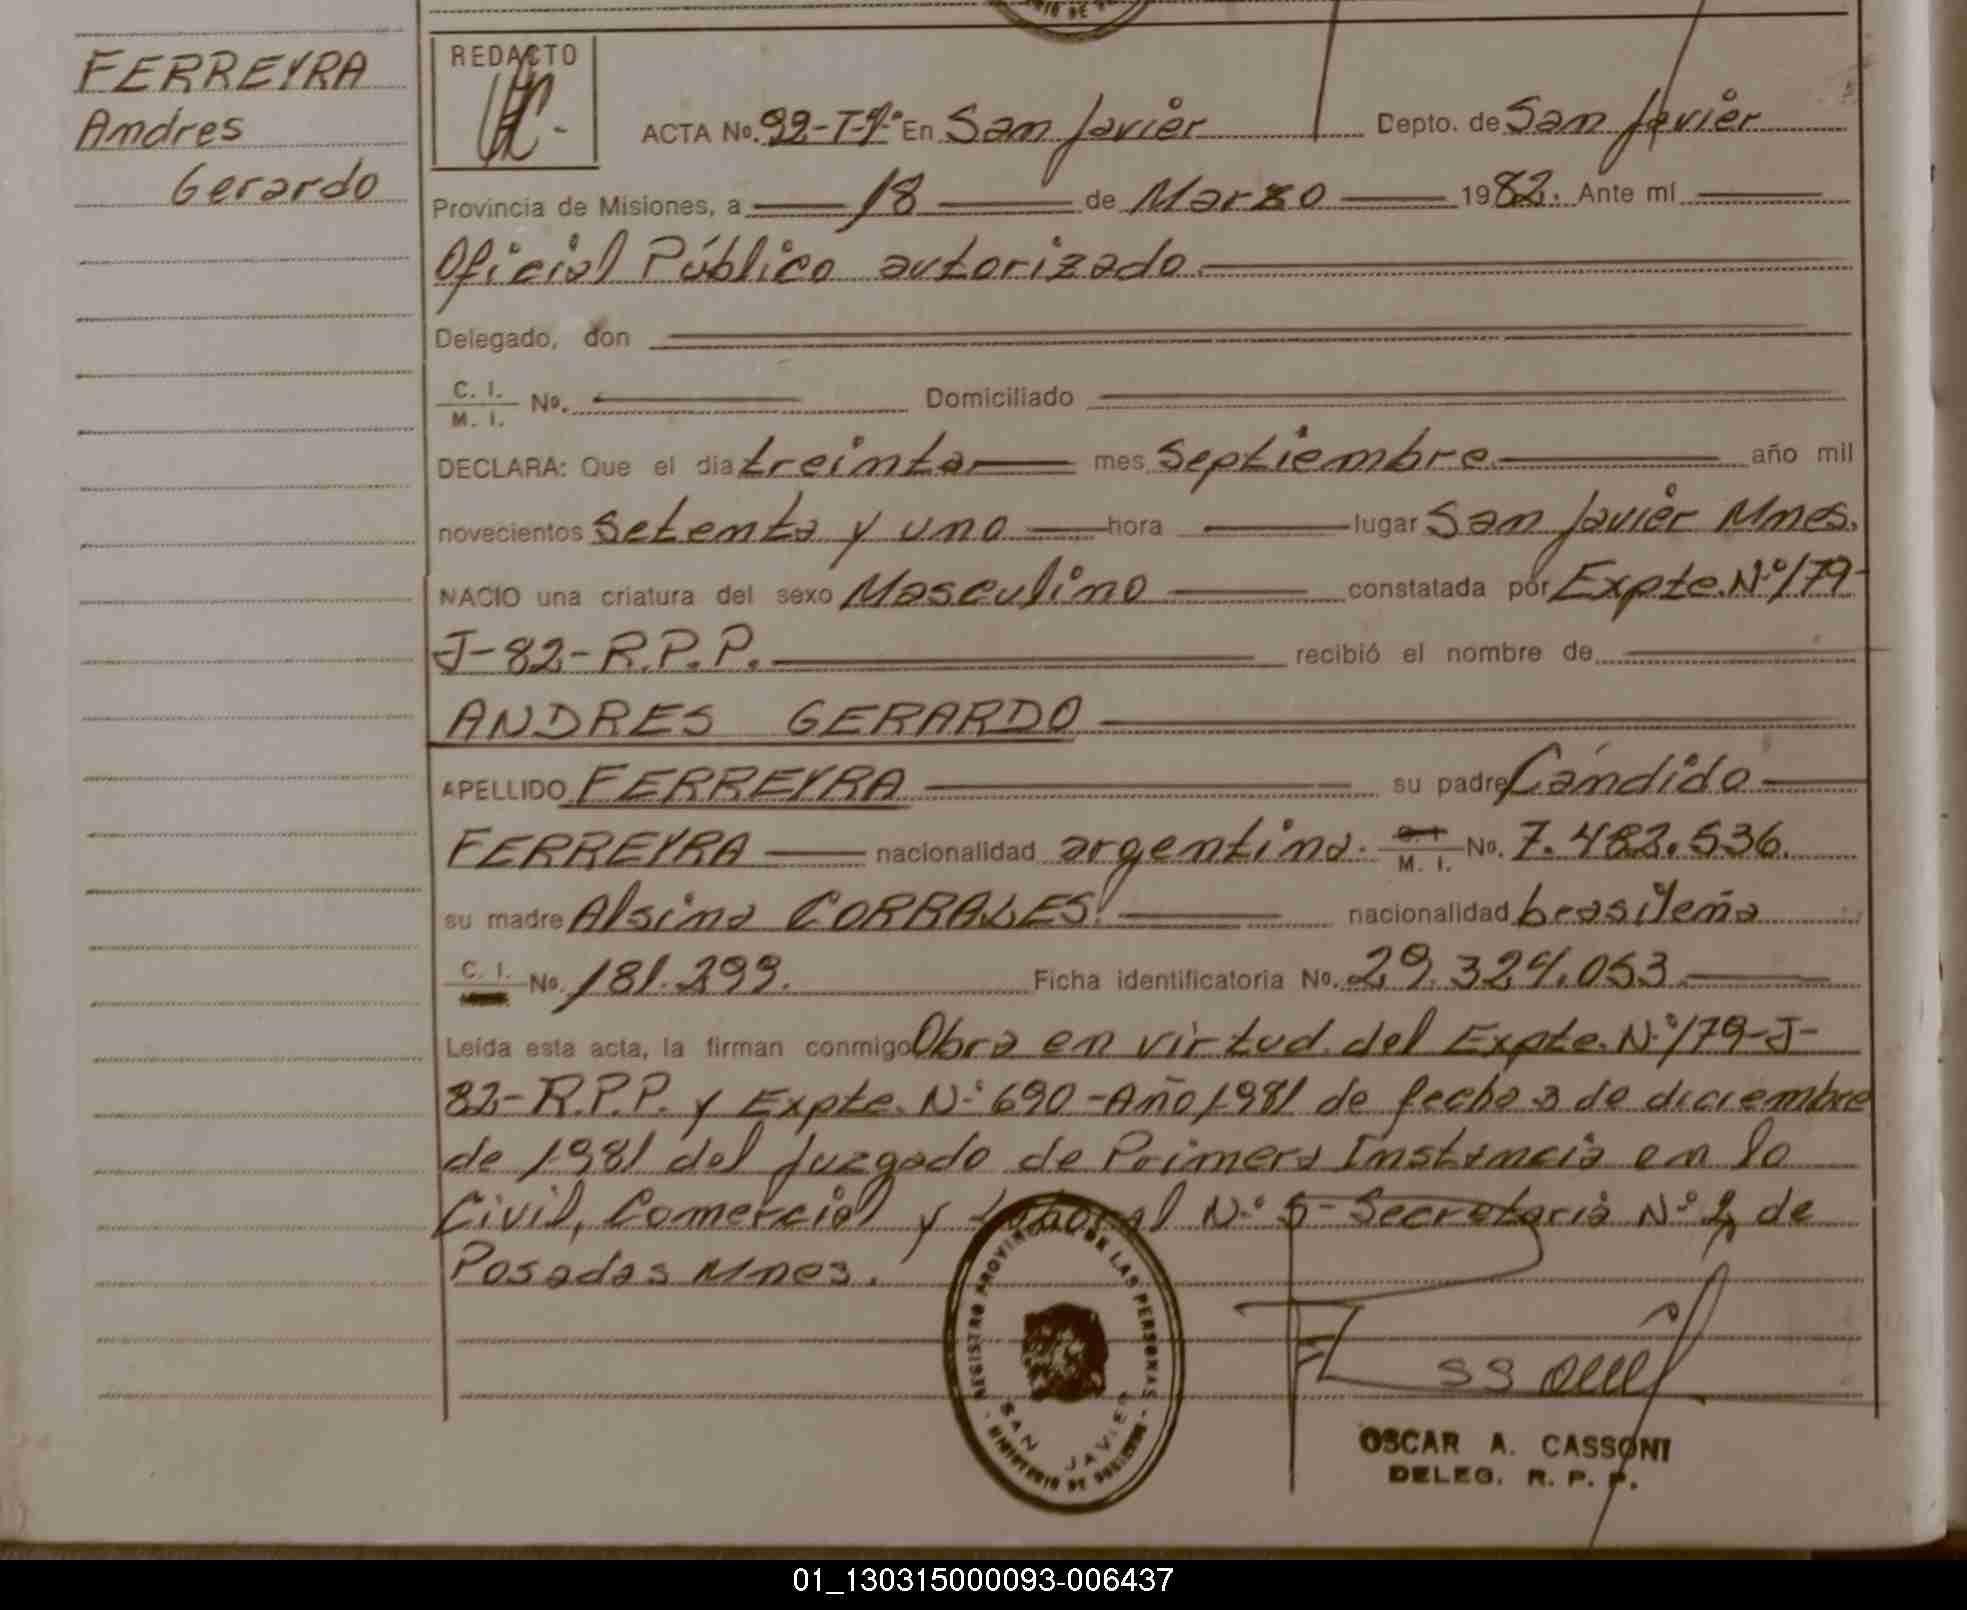 FERREYRA
Andres
Gerardo
REDACTO
ACTA No. 99-Tº1º En San Javier Depto. de San Javier
Provincia de Misiones, a 18 de Marzo 1982. Ante mí
Oficial Público autorizado
Delegado, don
C. I. / M. I. No. Domiciliado
DECLARA: Que el día treinta mes Septiembre año mil
novecientos setenta y uno hora lugar San Javier Mnes.
NACIO una criatura del sexo Masculino constatada por Expte. Nº 179-
J-82-R.P.P. recibió el nombre de
ANDRES GERARDO
APELLIDO FERREYRA su padre Cándido
FERREYRA nacionalidad argentina. C. I. / M. I. No. 7.482.536.
su madre Alsina CORRALES nacionalidad brasileña
C. I. No. 181.299. Ficha identificatoria No. 29.324.053
Leída esta acta, la firman conmigo Obra en virtud del Expte. Nº 179-J-
82-R.P.P. y Expte. Nº 690-Año 1981 de fecha 3 de diciembre
de 1981 del Juzgado de Primera Instancia en lo
Civil, Comercial y Laboral Nº 5-Secretaria Nº de
Posadas Mnes.
REGISTRO PROVINCIAL DE LAS PERSONAS
SAN JAVIER
MINISTERIO DE GOBIERNO
OSCAR A. CASSONI
DELEG. R. P. P.
01_130315000093-006437